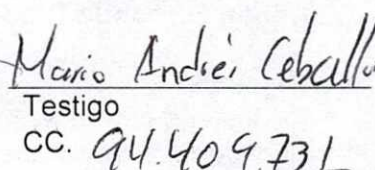 Mario Andrei Ceball
Testigo
CC. 94.409.731